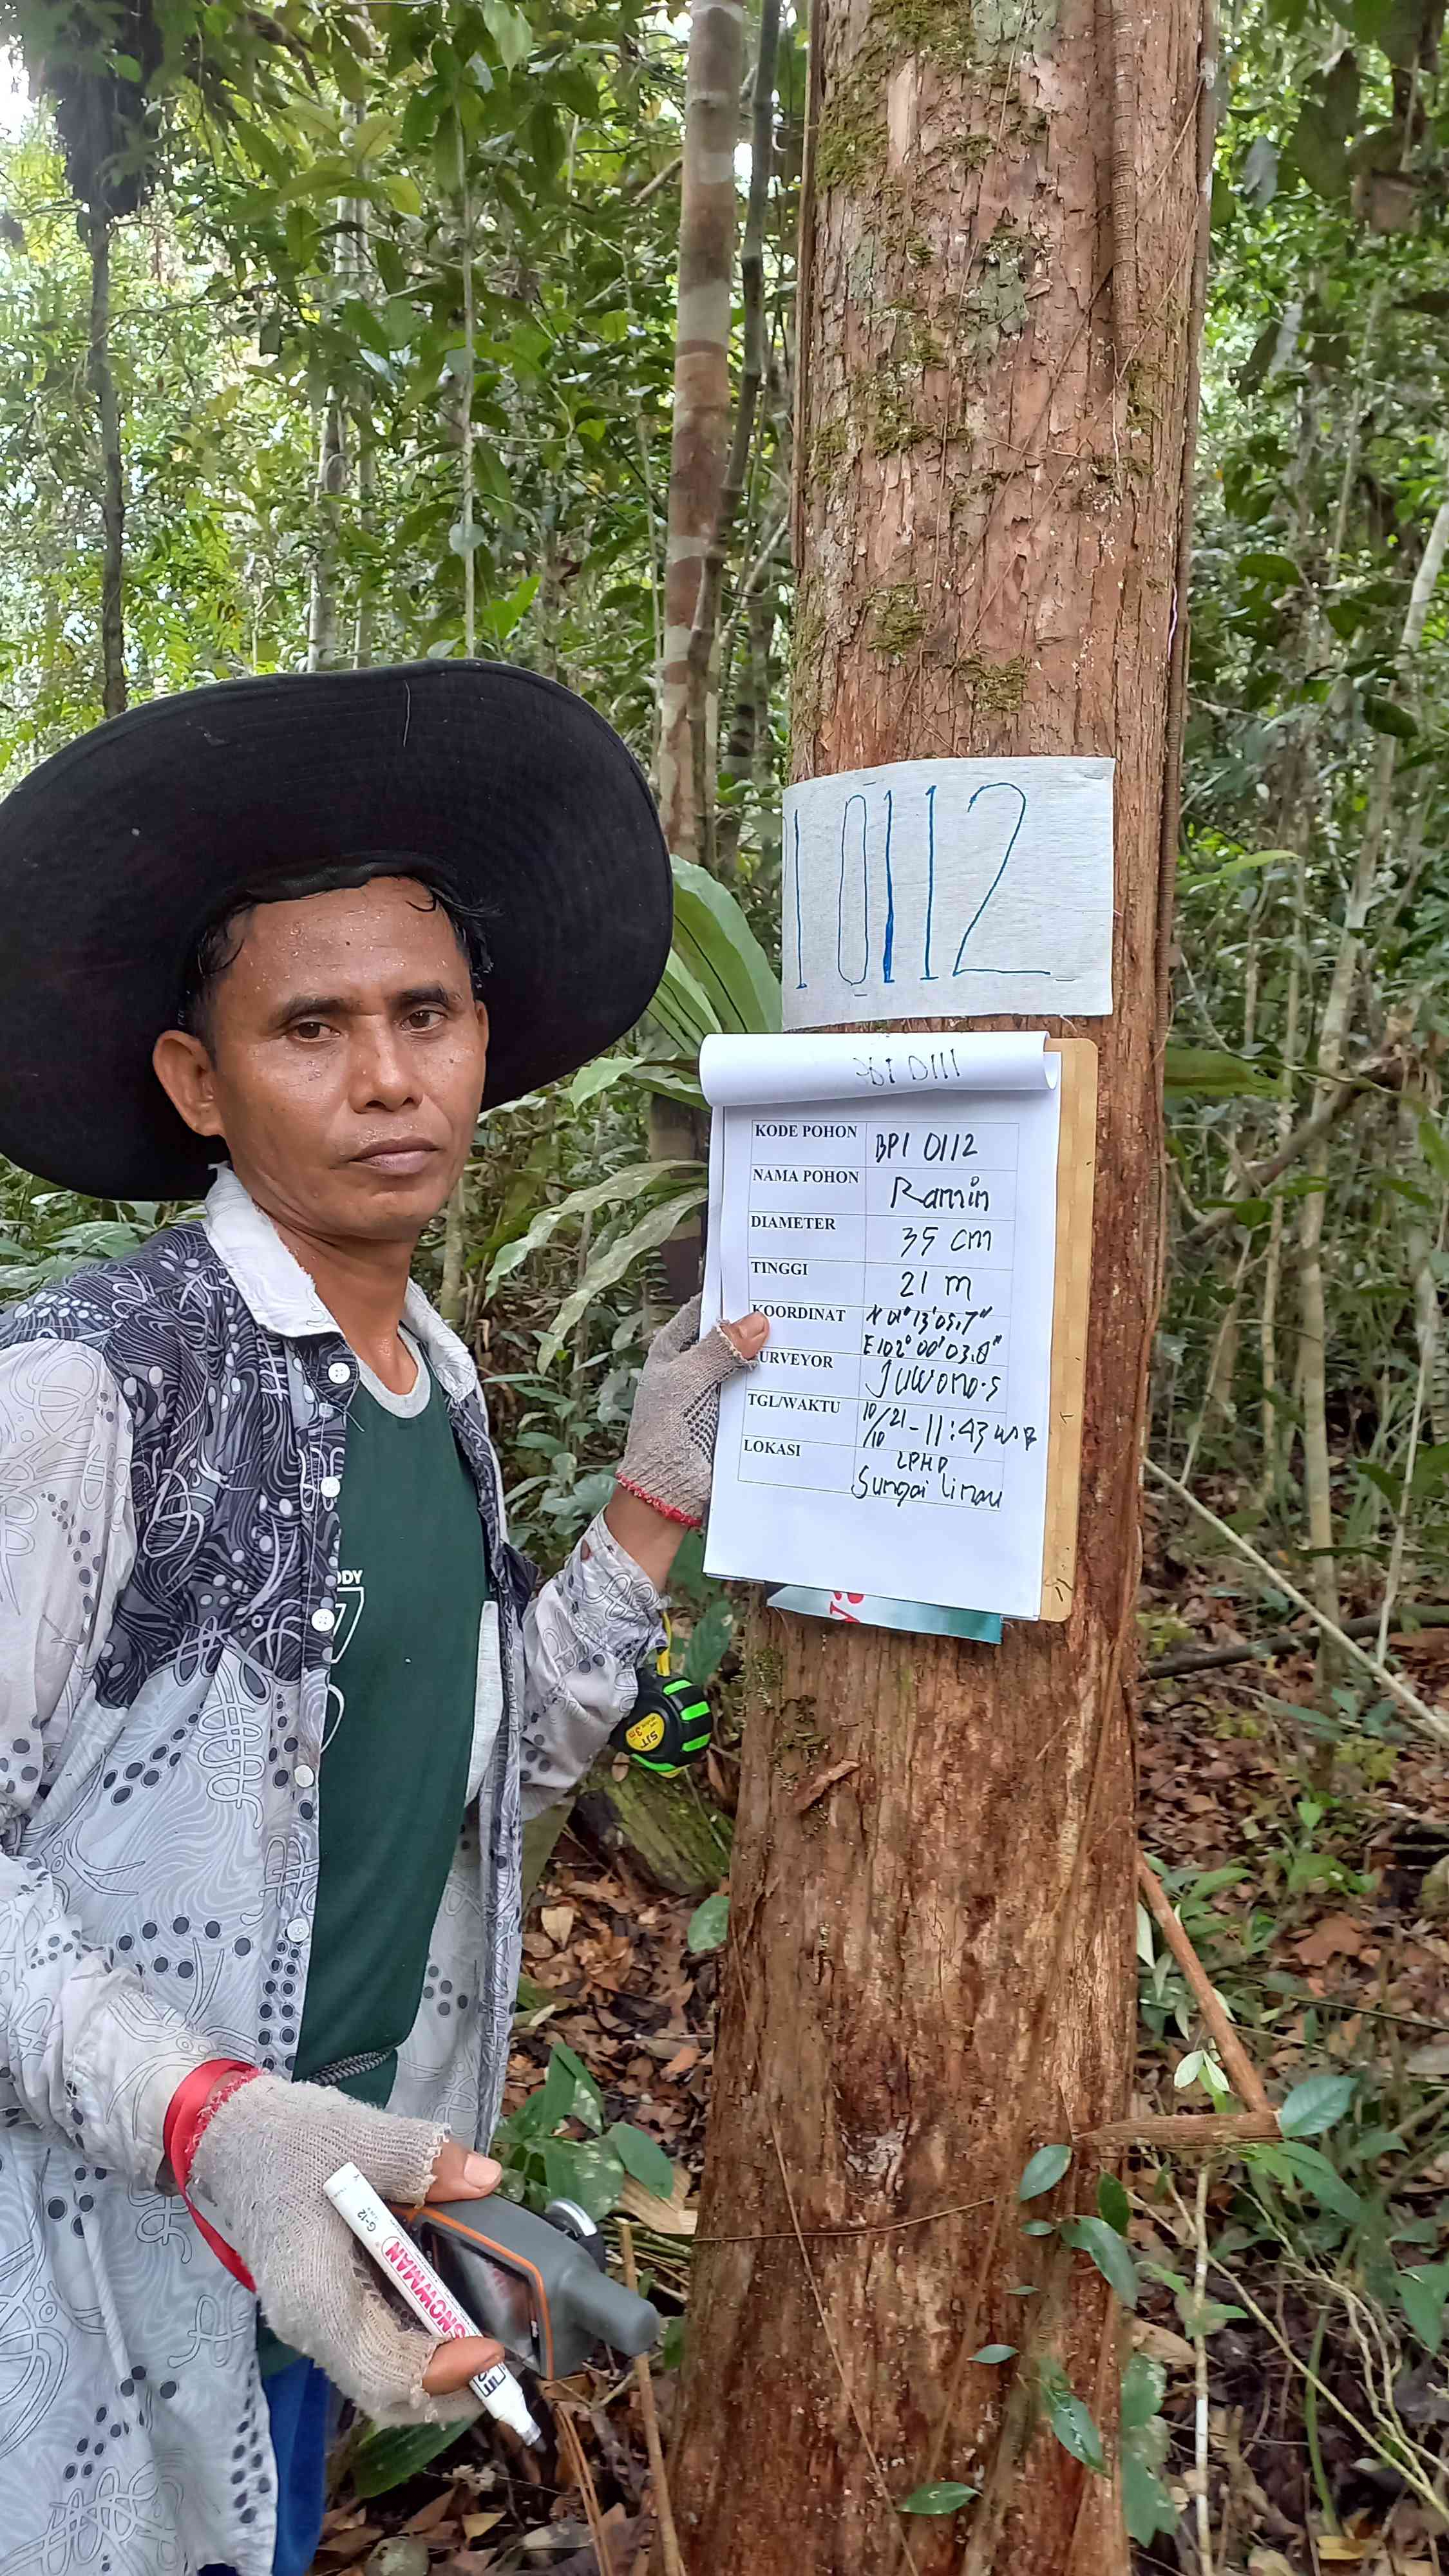 10112
KODE POHON BPI 0112
NAMA POHON Ramin
DIAMETER 35 cm
TINGGI 21 m
KOORDINAT N 01° 13' 05,7"
E 102° 00' 03.8"
URVEYOR Juwono.S
TGL/WAKTU 10/10/21 - 11:43 WIB
LOKASI LPHD
Sungai Linau
ODY
SJT 3m
SNOWMAN
G-12